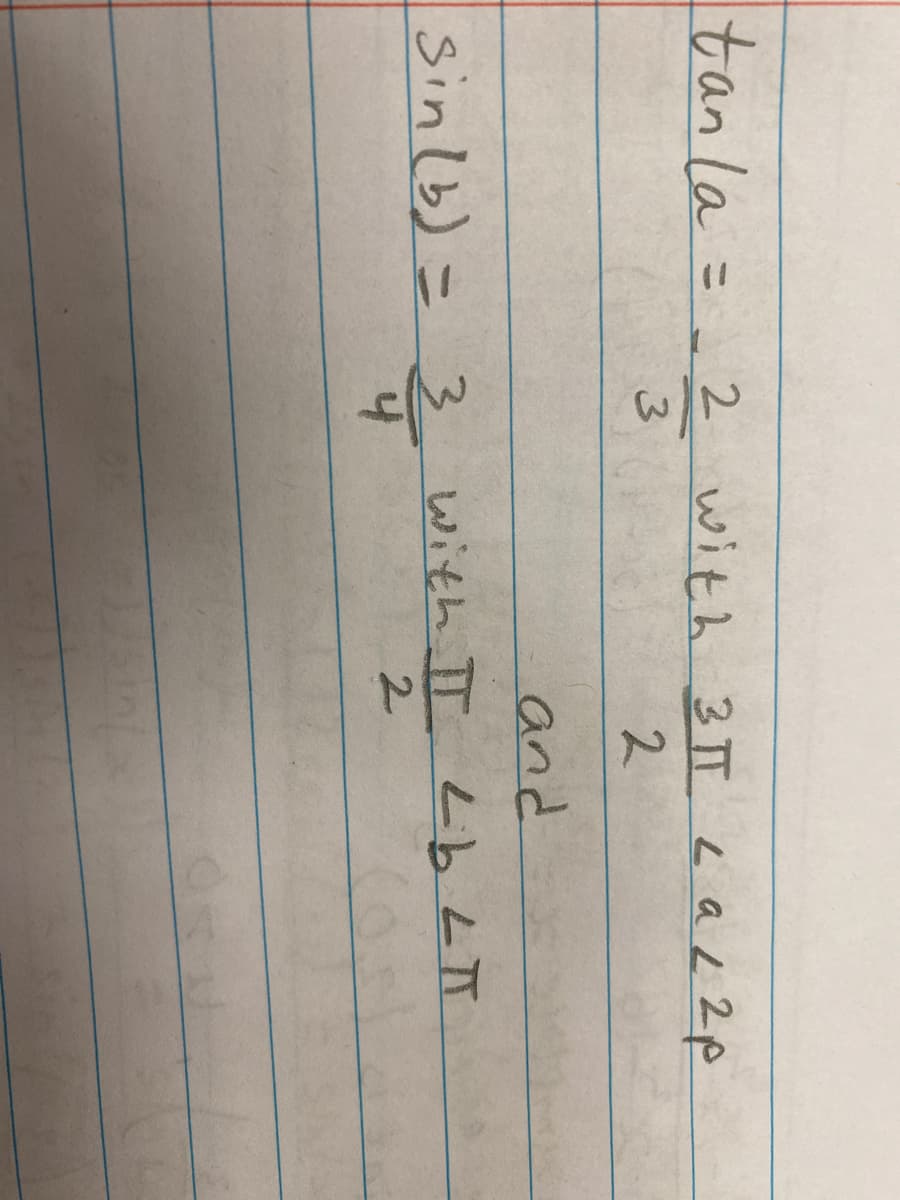 tan(a = - 2/3 with 3π/2 < a < 2p
and
sin(b) = 3/4 with π/2 < b < π